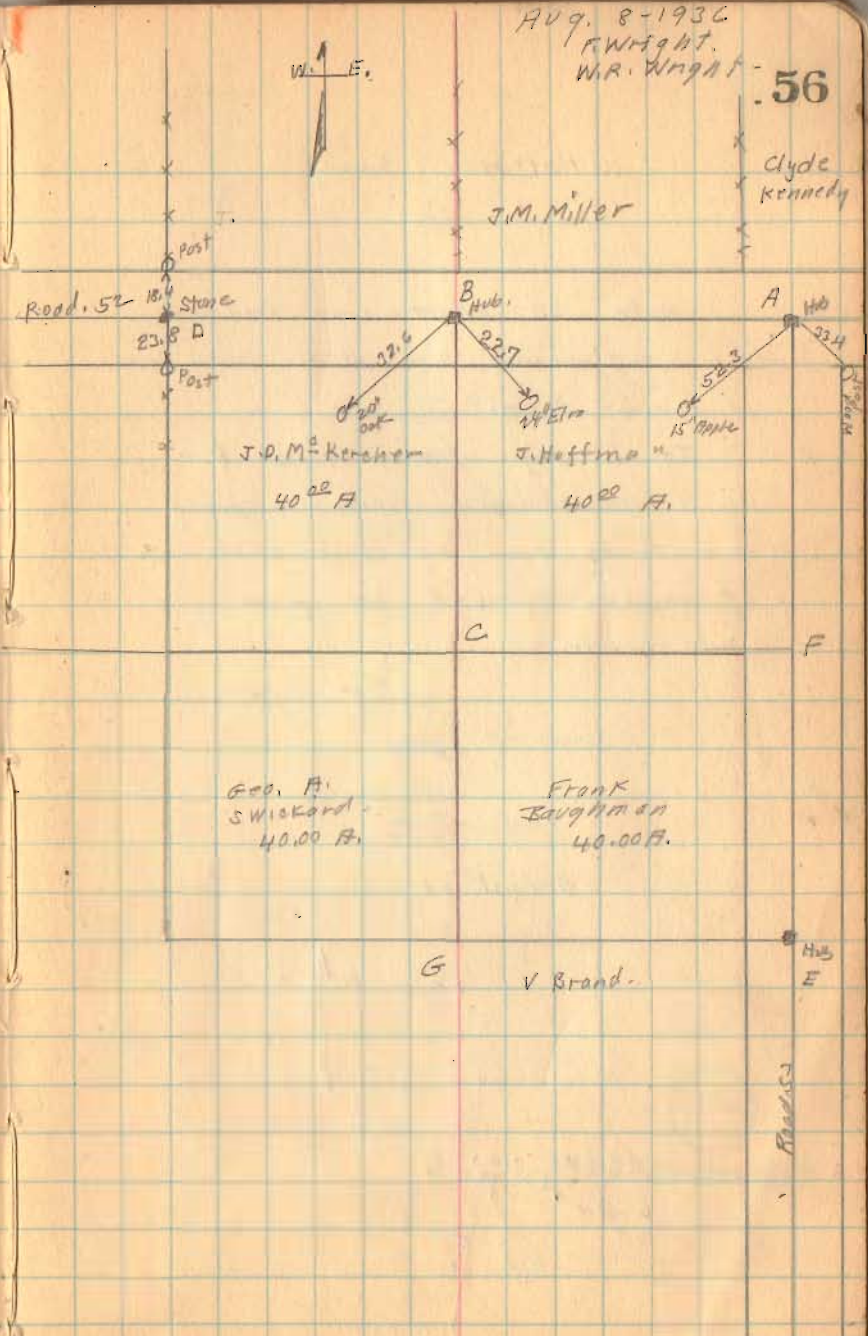 Aug. 8-1936
F. Wright.
W.R. Wright -
56
W. E.
Clyde
Kennedy
J.M. Miller
J.
Post
18.4
Road. 52
Stone
23.8
D
Post
B
Hub.
A
Hub
32.6
22.7
52.3
33.4
20"
Oak
24" Elm
15" Apple
J.D. McKercher
40 00 A
J. Hoffman
40 00 A.
C
F
Geo. A.
Swickard -
40.00 A.
Frank
Baughman
40.00 A.
G
V Brand -
Hub
E
Road 52